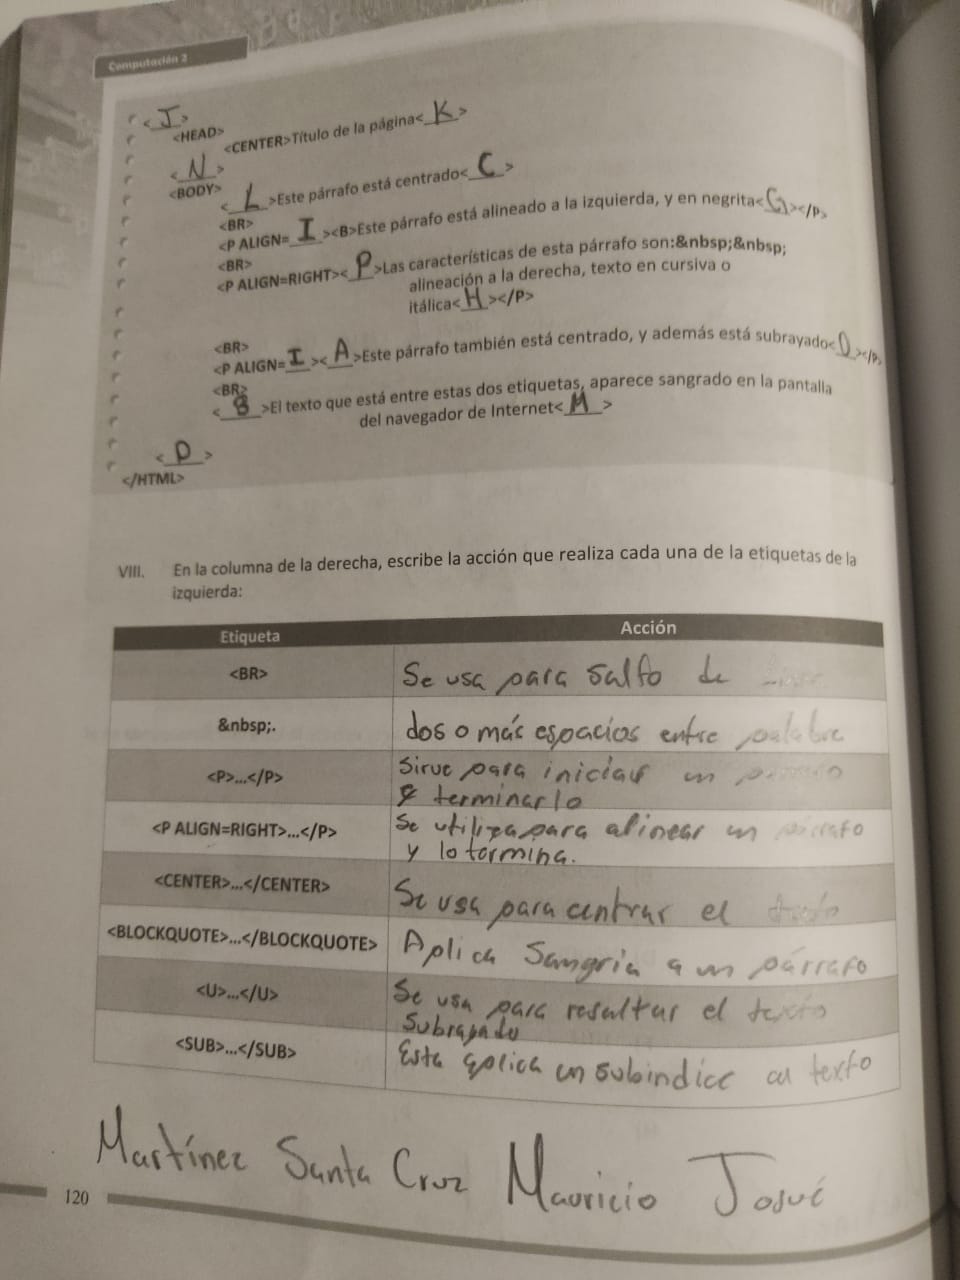 Computación 2
< J >
<HEAD>
<CENTER>Título de la página< K >
< N >
<BODY>
< L >Este párrafo está centrado< C >
<BR>
<P ALIGN= I ><B>Este párrafo está alineado a la izquierda, y en negrita< G ></P>
<BR>
<P ALIGN=RIGHT>< P >Las características de esta párrafo son:&nbsp;&nbsp;
alineación a la derecha, texto en cursiva o
itálica< H ></P>
<BR>
<P ALIGN= I >< A >Este párrafo también está centrado, y además está subrayado< O ></P>
<BR>
< B >El texto que está entre estas dos etiquetas, aparece sangrado en la pantalla
del navegador de Internet< M >
< D >
</HTML>
VIII. En la columna de la derecha, escribe la acción que realiza cada una de la etiquetas de la
izquierda:
Etiqueta Acción
<BR> Se usa para salto de
&nbsp;. dos o más espacios entre palabra
<P>...</P> Sirve para iniciar un párrafo
y terminarlo
<P ALIGN=RIGHT>...</P> Se utiliza para alinear un párrafo
y lo termina.
<CENTER>...</CENTER> Se usa para centrar el texto
<BLOCKQUOTE>...</BLOCKQUOTE> Aplica Sangria a un párrafo
<U>...</U> Se usa para resaltar el texto
subrayado
<SUB>...</SUB> Esta aplica un subindice en texto
Martínez Santa Cruz Mauricio Josué
120